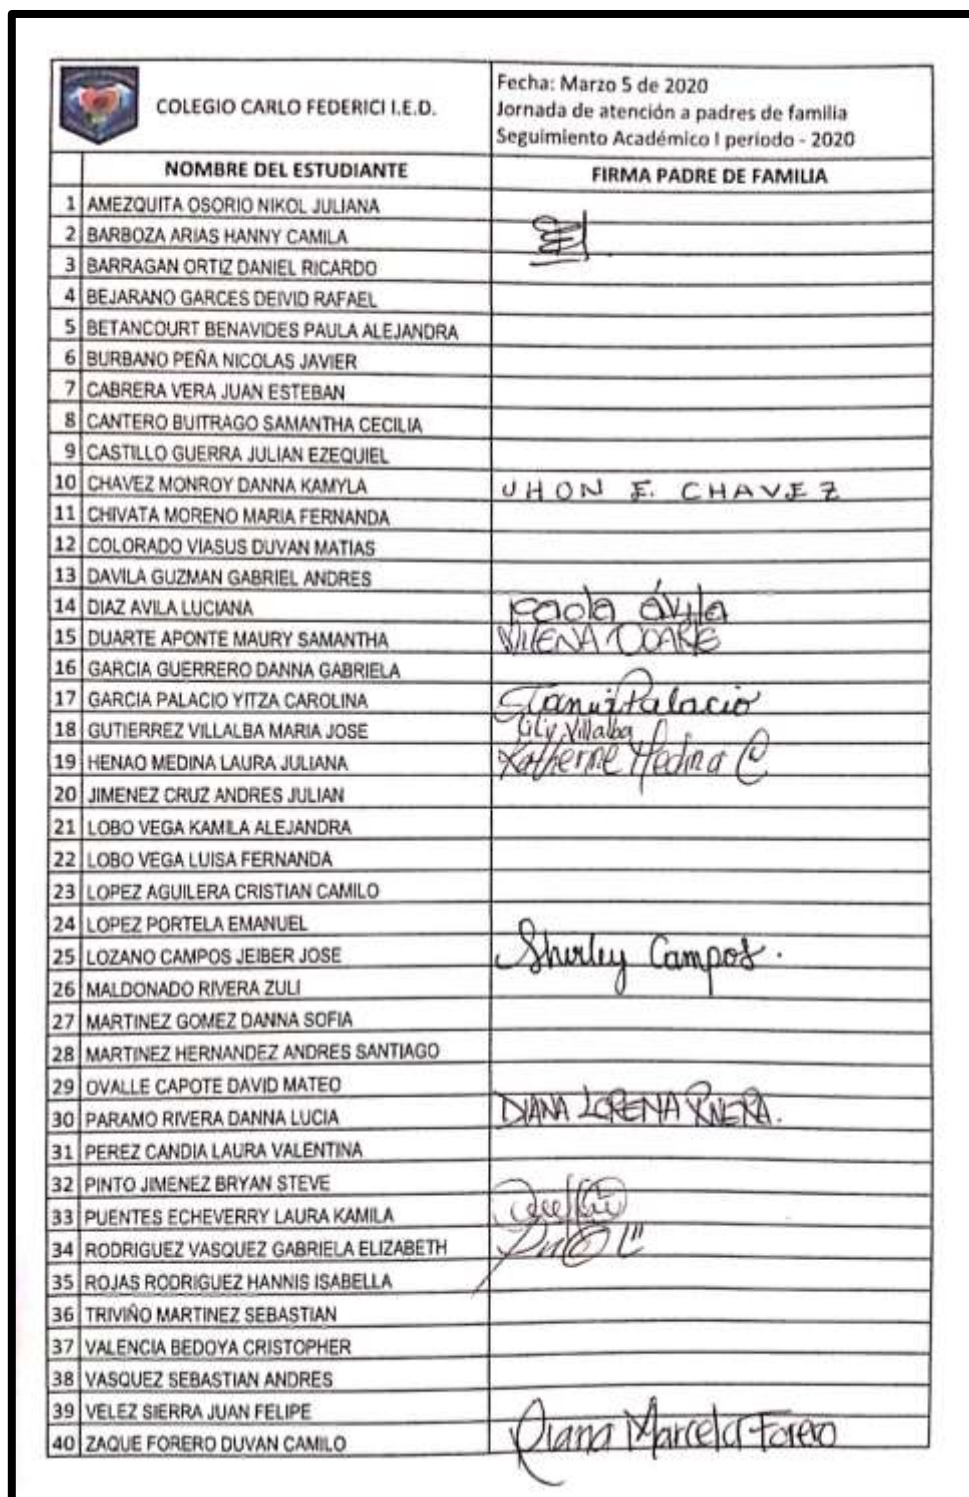 COLEGIO CARLO FEDERICI I.E.D.
Fecha: Marzo 5 de 2020
Jornada de atención a padres de familia
Seguimiento Académico I periodo - 2020
NOMBRE DEL ESTUDIANTE FIRMA PADRE DE FAMILIA
1 AMEZQUITA OSORIO NIKOL JULIANA
2 BARBOZA ARIAS HANNY CAMILA
3 BARRAGAN ORTIZ DANIEL RICARDO
4 BEJARANO GARCES DEIVID RAFAEL
5 BETANCOURT BENAVIDES PAULA ALEJANDRA
6 BURBANO PEÑA NICOLAS JAVIER
7 CABRERA VERA JUAN ESTEBAN
8 CANTERO BUITRAGO SAMANTHA CECILIA
9 CASTILLO GUERRA JULIAN EZEQUIEL
10 CHAVEZ MONROY DANNA KAMYLA JHON E. CHAVEZ
11 CHIVATA MORENO MARIA FERNANDA
12 COLORADO VIASUS DUVAN MATIAS
13 DAVILA GUZMAN GABRIEL ANDRES
14 DIAZ AVILA LUCIANA paola ávila
15 DUARTE APONTE MAURY SAMANTHA
16 GARCIA GUERRERO DANNA GABRIELA
17 GARCIA PALACIO YITZA CAROLINA Palacio
18 GUTIERREZ VILLALBA MARIA JOSE Lily Villalba
19 HENAO MEDINA LAURA JULIANA Katherine Medina C
20 JIMENEZ CRUZ ANDRES JULIAN
21 LOBO VEGA KAMILA ALEJANDRA
22 LOBO VEGA LUISA FERNANDA
23 LOPEZ AGUILERA CRISTIAN CAMILO
24 LOPEZ PORTELA EMANUEL
25 LOZANO CAMPOS JEIBER JOSE Shirley Campos.
26 MALDONADO RIVERA ZULI
27 MARTINEZ GOMEZ DANNA SOFIA
28 MARTINEZ HERNANDEZ ANDRES SANTIAGO
29 OVALLE CAPOTE DAVID MATEO
30 PARAMO RIVERA DANNA LUCIA DIANA LORENA RIVERA.
31 PEREZ CANDIA LAURA VALENTINA
32 PINTO JIMENEZ BRYAN STEVE
33 PUENTES ECHEVERRY LAURA KAMILA
34 RODRIGUEZ VASQUEZ GABRIELA ELIZABETH
35 ROJAS RODRIGUEZ HANNIS ISABELLA
36 TRIVIÑO MARTINEZ SEBASTIAN
37 VALENCIA BEDOYA CRISTOPHER
38 VASQUEZ SEBASTIAN ANDRES
39 VELEZ SIERRA JUAN FELIPE
40 ZAQUE FORERO DUVAN CAMILO Diana Marcela Forero